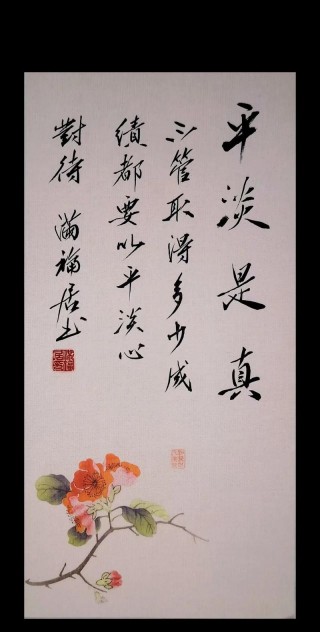 平淡是真
不管取得多少成
績都要以平淡心
對待 滿福居书